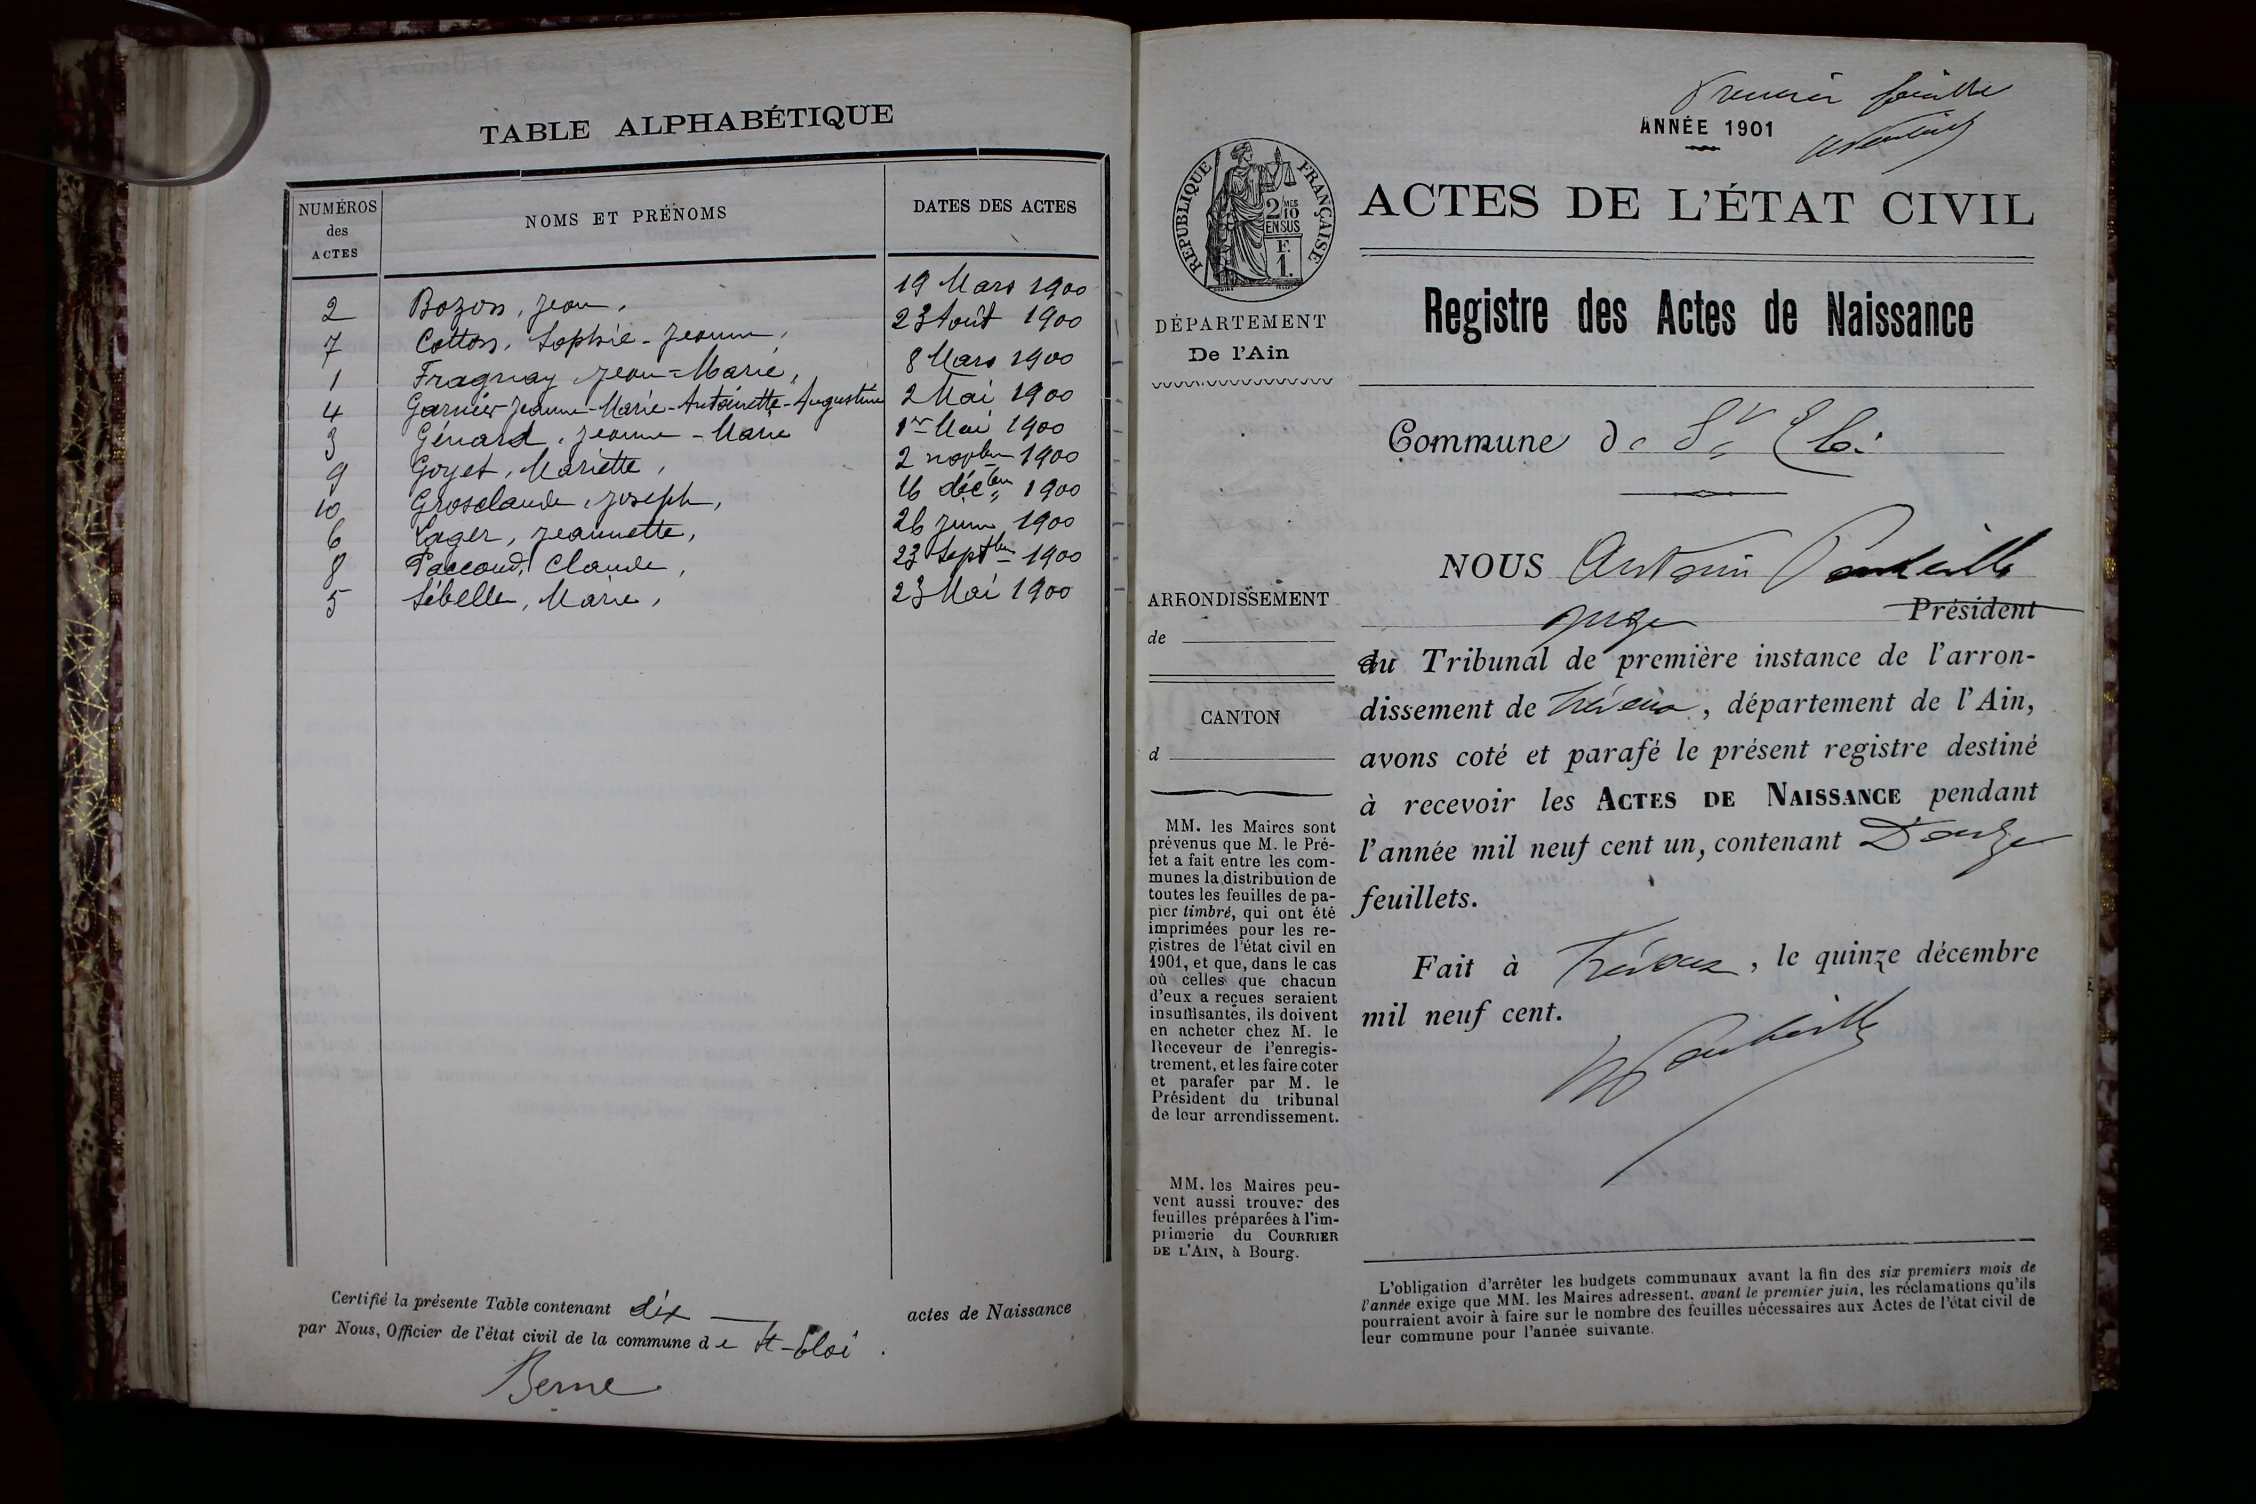 TABLE ALPHABÉTIQUE
NUMÉROS
des
ACTES
NOMS ET PRÉNOMS
DATES DES ACTES
2 Bozon, Jean, 19 Mars 1900
7 Cotton, Sophie-Jeanne, 23 Août 1900
1 Fragnay Jean-Marie, 8 Mars 1900
4 Garnier Jeanne-Marie-Antoinette-Augustine 2 Mai 1900
3 Génard, Jeanne-Marie 1er Mai 1900
9 Goyet, Mariette, 2 novbre 1900
10 Grosclaude, Joseph, 16 décbre 1900
6 Lager, Jeannette, 26 Juin 1900
8 Paccoud, Claude, 23 Septbre 1900
5 Sébelle, Marie, 23 Mai 1900
Certifié la présente Table contenant dix actes de Naissance
par Nous, Officier de l'état civil de la commune de St-Eloi.
Berne
Premier feuillet
ANNÉE 1901
RÉPUBLIQUE FRANÇAISE
2 MES
10
EN SUS
F.
1.
ACTES DE L'ÉTAT CIVIL
Registre des Actes de Naissance
DÉPARTEMENT
De l'Ain
Commune de St Eloi
NOUS Antonin
ARRONDISSEMENT
de
CANTON
d
juge Président
du Tribunal de première instance de l'arron-
dissement de Trévoux, département de l'Ain,
avons coté et parafé le présent registre destiné
à recevoir les ACTES DE NAISSANCE pendant
l'année mil neuf cent un, contenant Douze
feuillets.
Fait à Trévoux, le quinze décembre
mil neuf cent.
MM. les Maires sont
prévenus que M. le Pré-
fet a fait entre les com-
munes la distribution de
toutes les feuilles de pa-
pier timbré, qui ont été
imprimées pour les re-
gistres de l'état civil en
1901, et que, dans le cas
où celles que chacun
d'eux a reçues seraient
insuffisantes, ils doivent
en acheter chez M. le
Receveur de l'enregis-
trement, et les faire coter
et parafer par M. le
Président du tribunal
de leur arrondissement.
MM. les Maires peu-
vent aussi trouver des
feuilles préparées à l'im-
primerie du COURRIER
DE L'AIN, à Bourg.
L'obligation d'arrêter les budgets communaux avant la fin des six premiers mois de
l'année exige que MM. les Maires adressent, avant le premier juin, les réclamations qu'ils
pourraient avoir à faire sur le nombre des feuilles nécessaires aux Actes de l'état civil de
leur commune pour l'année suivante.